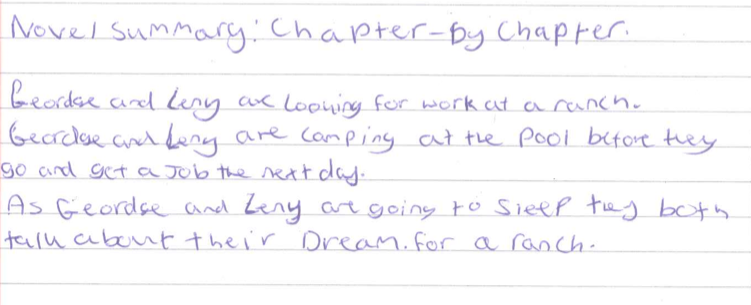 Novel Summary: Chapter-by Chapter.
Geordge and Leny are looking for work at a ranch.
Geordge and Leny are camping at the pool before they
go and get a Job the next day.
As Geordge and Leny are going to sleep they both
talk about their Dream. for a ranch.